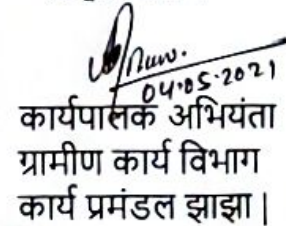 04.05.2021
कार्यपालक अभियंता
ग्रामीण कार्य विभाग
कार्य प्रमंडल झाझा |